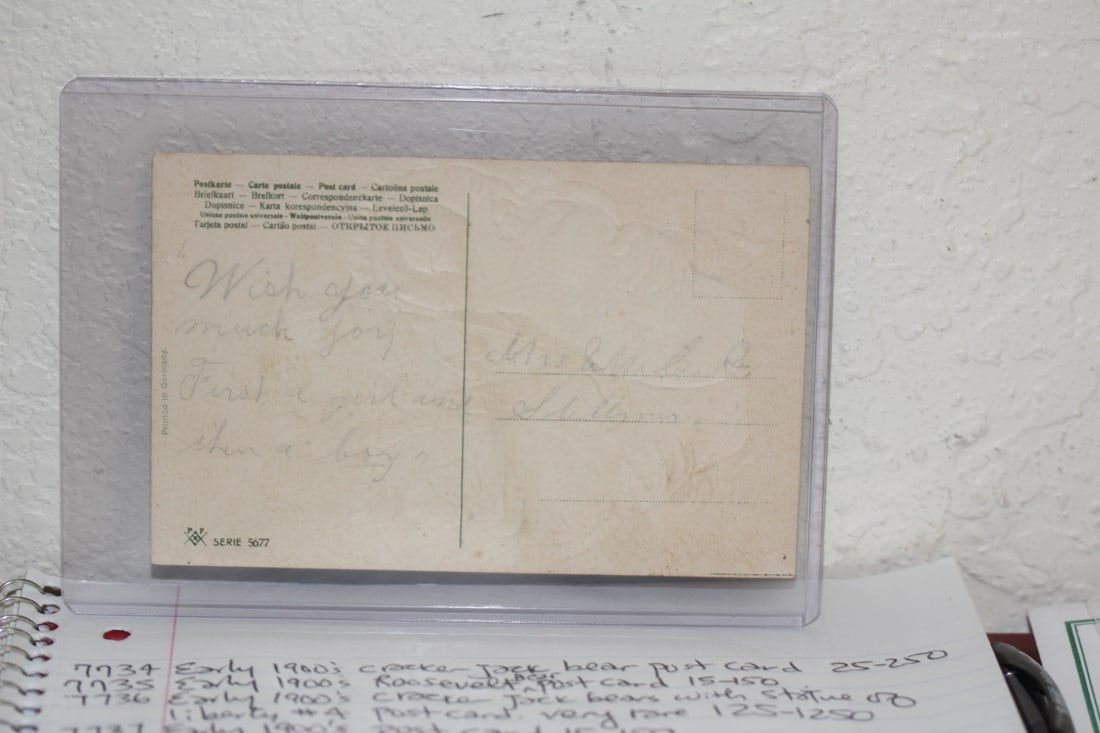 Postkarte — Carte postale — Post card — Cartolina postale
Briefkaart — Brefkort — Correspondenzkarte — Dopisnica
Dopisnice — Karta korespondencyjna — Levelező-Lap
Unione postale universale - Weltpostverein - Union postale universelle
Tarjeta postal — Cartão postal — ОТКРЫТОЕ ПИСЬМО
Wish you
much joy
First a girl and
then a boy
Mrs
Printed in Germany.
P F
SERIE 5677
7734 Early 1900's cracker jack bear post card 25-250
7735 Early 1900's Roosevelt bear post card 15-150
7736 Early 1900's cracker jack bears with Statue of
liberty #4 post card. very rare 125-1250
7737 Early 1900's post card